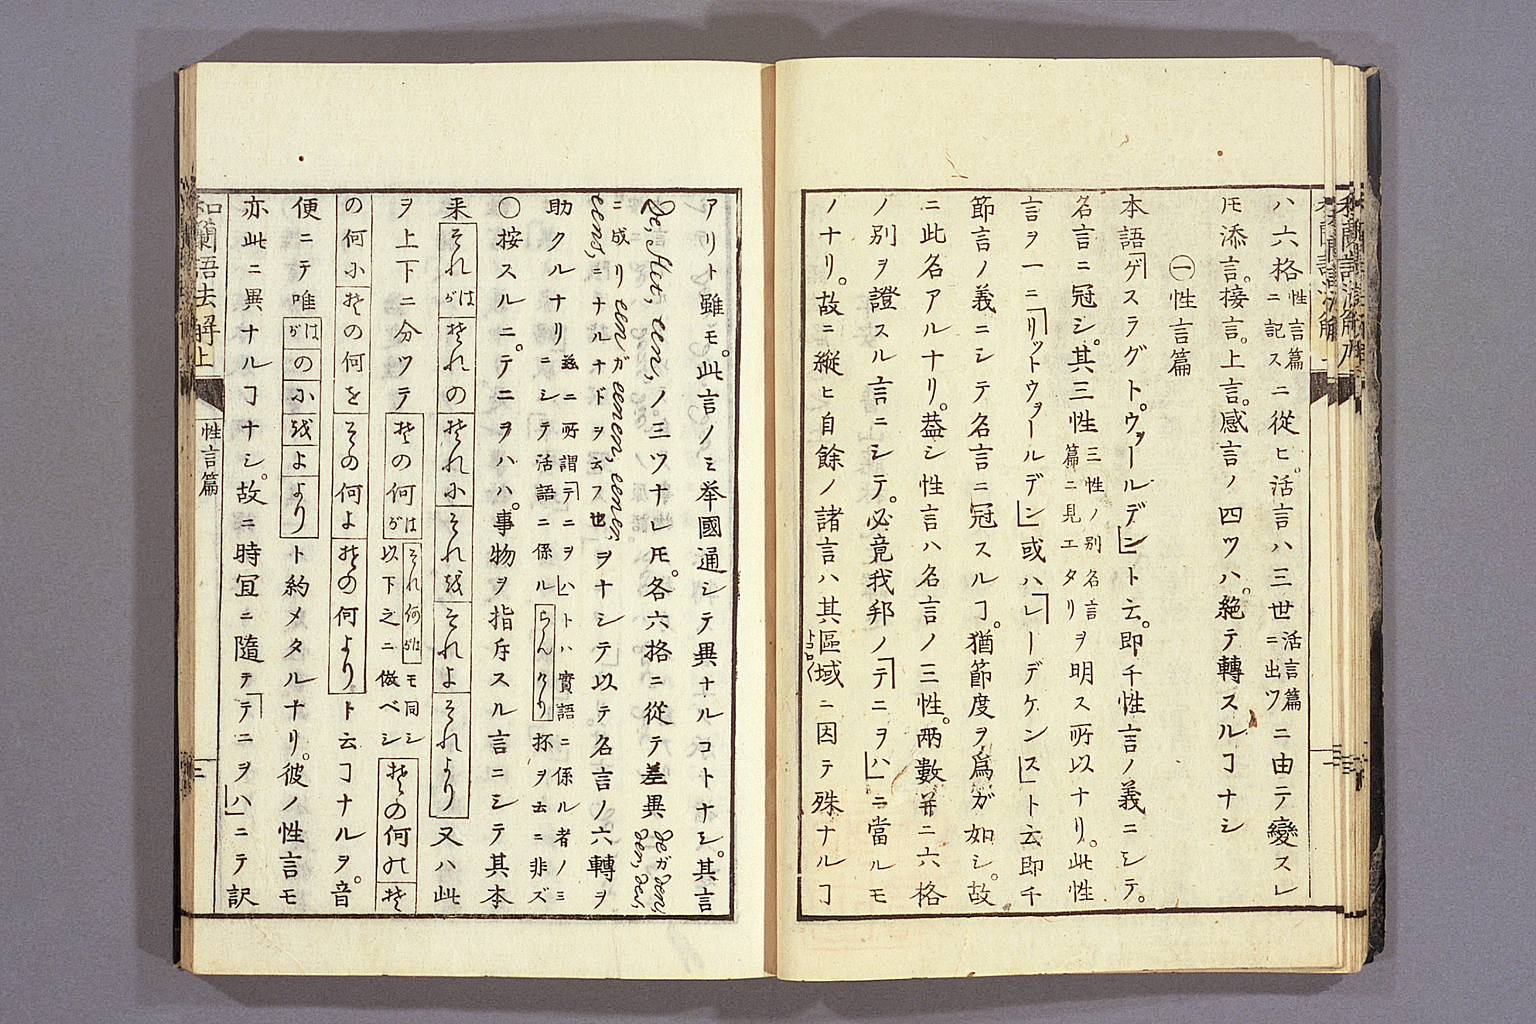 ハ六格性言篇ニ記スニ從ヒ。活言ハ三世活言篇ニ出ヅニ由テ變スレ
𪜈添言。接言。上言。感言ノ四ツハ。絶テ轉スルヿナシ
㊀性言篇
本語「ゲスラグトウヲールデン」ト云。即チ性言ノ義ニシテ。
名言ニ冠シ。其三性三性ノ別名言篇ニ見エタリヲ明ス所以ナリ。此性
言ヲ一ニ「リットウヲールデン」或ハ「レーデケンス」ト云即チ
節言ノ義ニシテ名言ニ冠スルヿ。猶節度ヲ爲ガ如シ。故
ニ此名アルナリ。蓋シ性言ハ名言ノ三性。兩數并ニ六格
ノ別ヲ證スル言ニシテ。必竟我邦ノ「テニヲハ」ニ當ルモ
ノナリ。故ニ縱ヒ自餘ノ諸言ハ其區域ニ因テ殊ナルヿ
アリト雖モ。此言ノミ挙國通シテ異ナルコトナシ。其言
De, Het, een, ノ三ツナレ𪜈。各六格ニ從テ差異 deガden, der, des,
ニ成リ eenガ eenen, eener, eens, ニナルナドヲ云フ也ヲナシテ以テ名言ノ六轉ヲ
助クルナリ茲ニ所謂「テニヲハ」トハ實語ニ係ル者ノミニシテ活語ニ係ルらんけり抔ヲ云ニ非ズ
〇按スルニ。テニヲハハ。事物ヲ指斥スル言ニシテ其本
来それはがそれのそれにそれをそれよそれより又ハ此
ヲ上下ニ分ツテその何はがそれ何はがモ同シ以下之ニ倣ベシその何のそ
の何にその何をその何よその何よりト云ヿナルヲ。音
便ニテ唯はがのにをよよりト約メタルナリ。彼ノ性言モ
亦此ニ異ナルヿナシ。故ニ時冝ニ隨テ「テニヲハ」ニテ訳
和蘭語法解上
性言篇
三